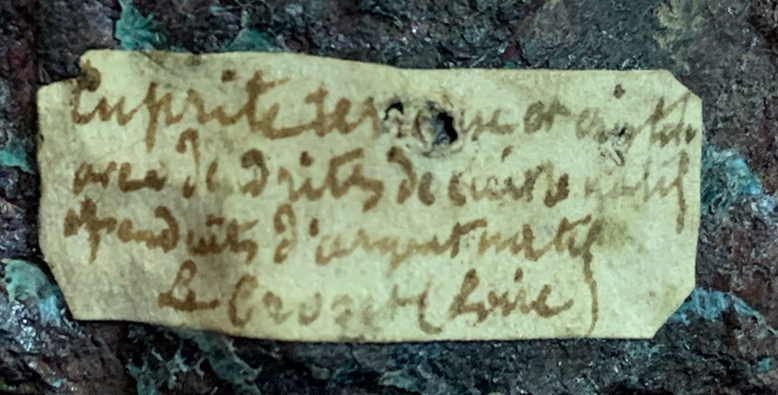 Cuprite terreuse et
avec dendrites de cuivre natif
et enduits d'argent natif
Le Crozet (Loire)